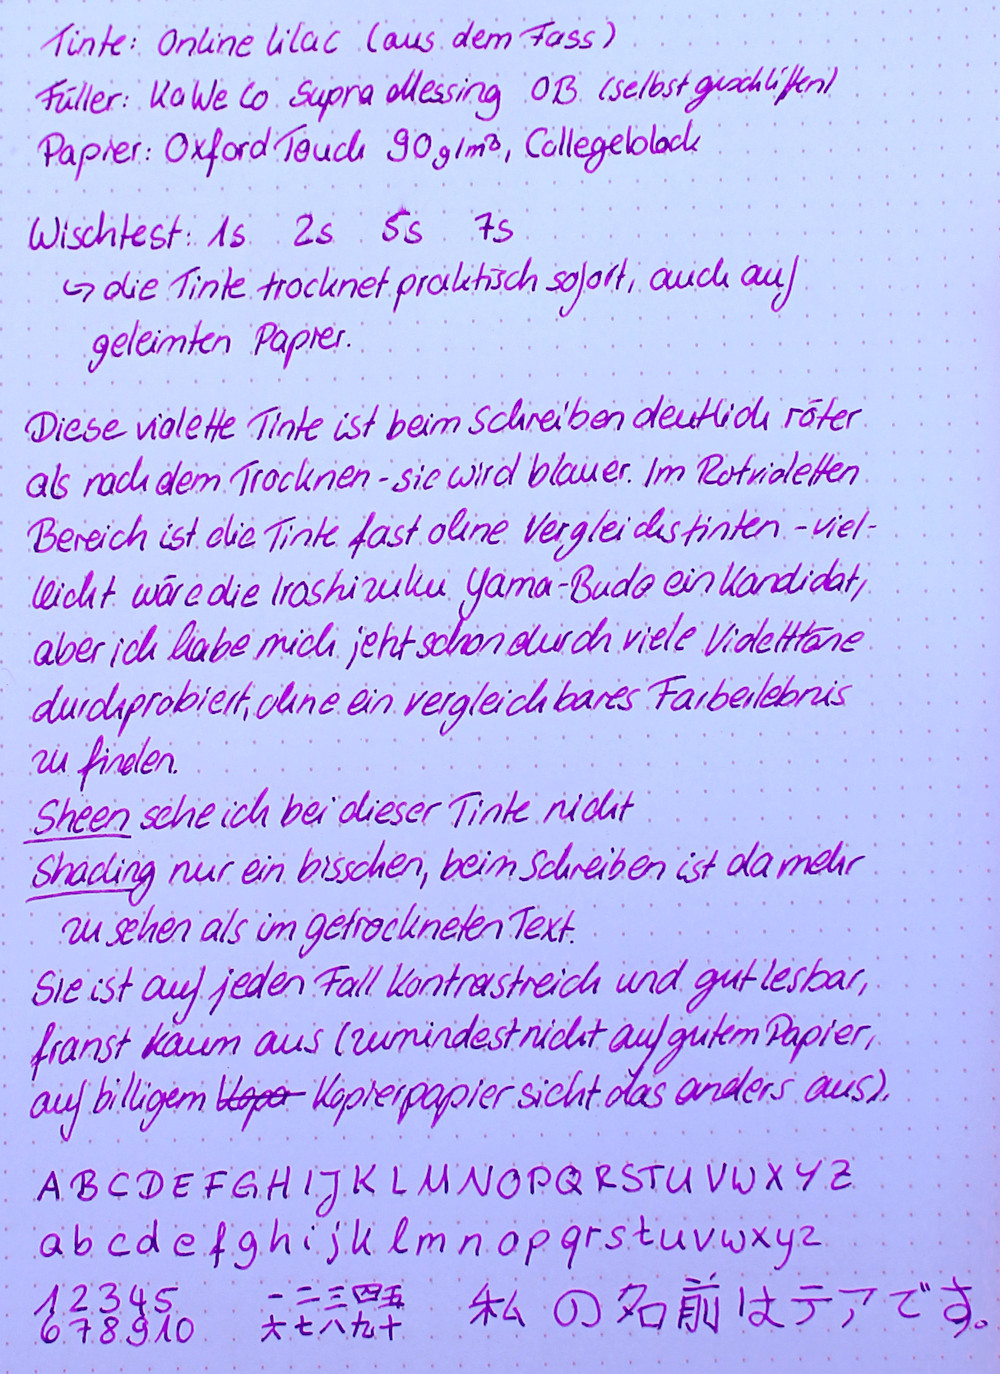 Tinte: Online lilac (aus dem Fass)
Füller: KaWeCo Supra Messing OB (selbst geschliffen)
Papier: Oxford Touch 90g/m³, Collegeblock
Wischtest: 1s 2s 5s 7s
↳ die Tinte trocknet praktisch sofort, auch auf
geleimten Papier.
Diese violette Tinte ist beim Schreiben deutlich röter
als nach dem Trocknen - sie wird blauer. Im Rotvioletten
Bereich ist die Tinte fast ohne Vergleichstinten - viel-
leicht wäre die Iroshizuku Yama-Budo ein Kandidat,
aber ich habe mich jetzt schon durch viele Violetttöne
durchprobiert, ohne ein vergleichbares Farberlebnis
zu finden.
Sheen sehe ich bei dieser Tinte nicht
Shading nur ein bisschen, beim Schreiben ist da mehr
zu sehen als im getrockneten Text.
Sie ist auf jeden Fall kontrastreich und gut lesbar,
franst kaum aus (zumindest nicht auf gutem Papier,
auf billigem Kopo Kopierpapier sieht das anders aus).
A B C D E F G H I J K L M N O P Q R S T U V W X Y Z
a b c d e f g h i j k l m n o p q r s t u v w x y z
1 2 3 4 5 一二三四五
6 7 8 9 10 六七八九十
私の名前はテアです。